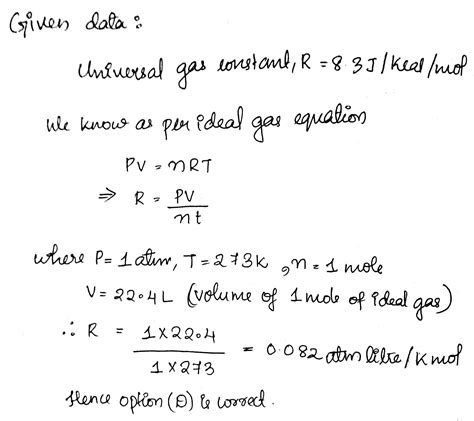 Given data :
Universal gas constant, R = 8 3 J / Kcal / mol
We know as per ideal gas equation
PV = nRT
⇒ R = PV / nt
where P = 1 atm, T = 273K , n = 1 mole
V = 22.4 L (volume of 1 mole of ideal gas)
∴ R = 1 × 22.4 / 1 × 273 = 0.082 atm litre / K mol
Hence option (D) is correct.